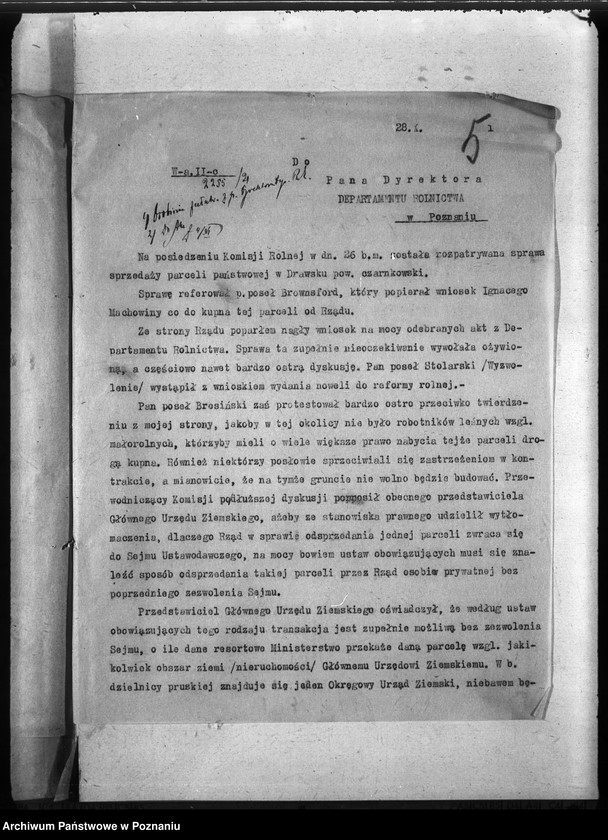 28.X. 5 1
D o
W-a.II-c
2255/21
P a n a D y r e k t o r a
DEPARTAMENTU ROLNICTWA
w Poznaniu
Na posiedzeniu Komisji Rolnej w dn. 26 b.m. została rozpatrywana sprawa
sprzedaży parceli państwowej w Drawsku pow. czarnkowski.
Sprawę referował p.poseł Brownsford, który popierał wniosek Ignacego
Machowiny co do kupna tej parceli od Rządu.
Ze strony Rządu poparłem nagły wniosek na mocy odebranych akt z De-
partamentu Rolnictwa. Sprawa ta zupełnie nieoczekiwanie wywołała ożywio-
ną, a częściowo nawet bardzo ostrą dyskusję. Pan poseł Stolarski /Wyzwo-
lenie/ wystąpił z wnioskiem wydania noweli do reformy rolnej.-
Pan poseł Bresiński zaś protestował bardzo ostro przeciwko twierdze-
niu z mojej strony, jakoby w tej okolicy nie było robotników leśnych wzgl.
małorolnych, którzyby mieli o wiele większe prawo nabycia tejże parceli dro-
gą kupna. Również niektórzy posłowie sprzeciwiali się zastrzeżeniom w kon-
trakcie, a mianowicie, że na tymże gruncie nie wolno będzie budować. Prze-
wodniczący Komisji podłuższej dyskusji poprosił obecnego przedstawiciela
Głównego Urzędu Ziemskiego, ażeby ze stanowiska prawnego udzielił wytło-
maczenia, dlaczego Rząd w sprawie odsprzedania jednej parceli zwraca się
do Sejmu Ustawodawczego, na mocy bowiem ustaw obowiązujących musi się zna-
leźć sposób odsprzedania takiej parceli przez Rząd osobie prywatnej bez
poprzedniego zezwolenia Sejmu.
Przedstawiciel Głównego Urzędu Ziemskiego oświadczył, że według ustaw
obowiązujących tego rodzaju transakcja jest zupełnie możliwą bez zezwolenia
Sejmu, o ile dane resortowe Ministerstwo przekaże daną parcelę wzgl. jaki-
kolwiek obszar ziemi /nieruchomości/ Głównemu Urzędowi Ziemskiemu. W b.
dzielnicy pruskiej znajduje się jeden Okręgowy Urząd Ziemski, niebawem bę-
Archiwum Państwowe w Poznaniu